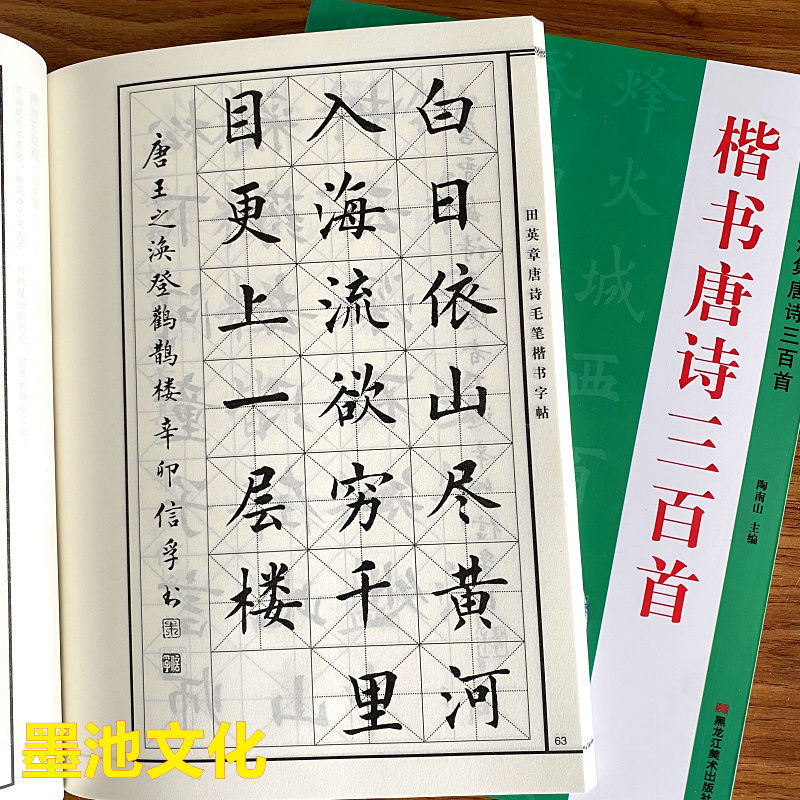 田英章唐诗毛笔楷书字帖
白日依山尽黄河
入海流欲穷千里
目更上一层楼
唐王之涣登鹳鹊楼辛卯信孚书
63
集唐诗三百首
楷书唐诗三百首
陶南山 主编
黑龙江美术出版社
烽火城西百
墨池文化